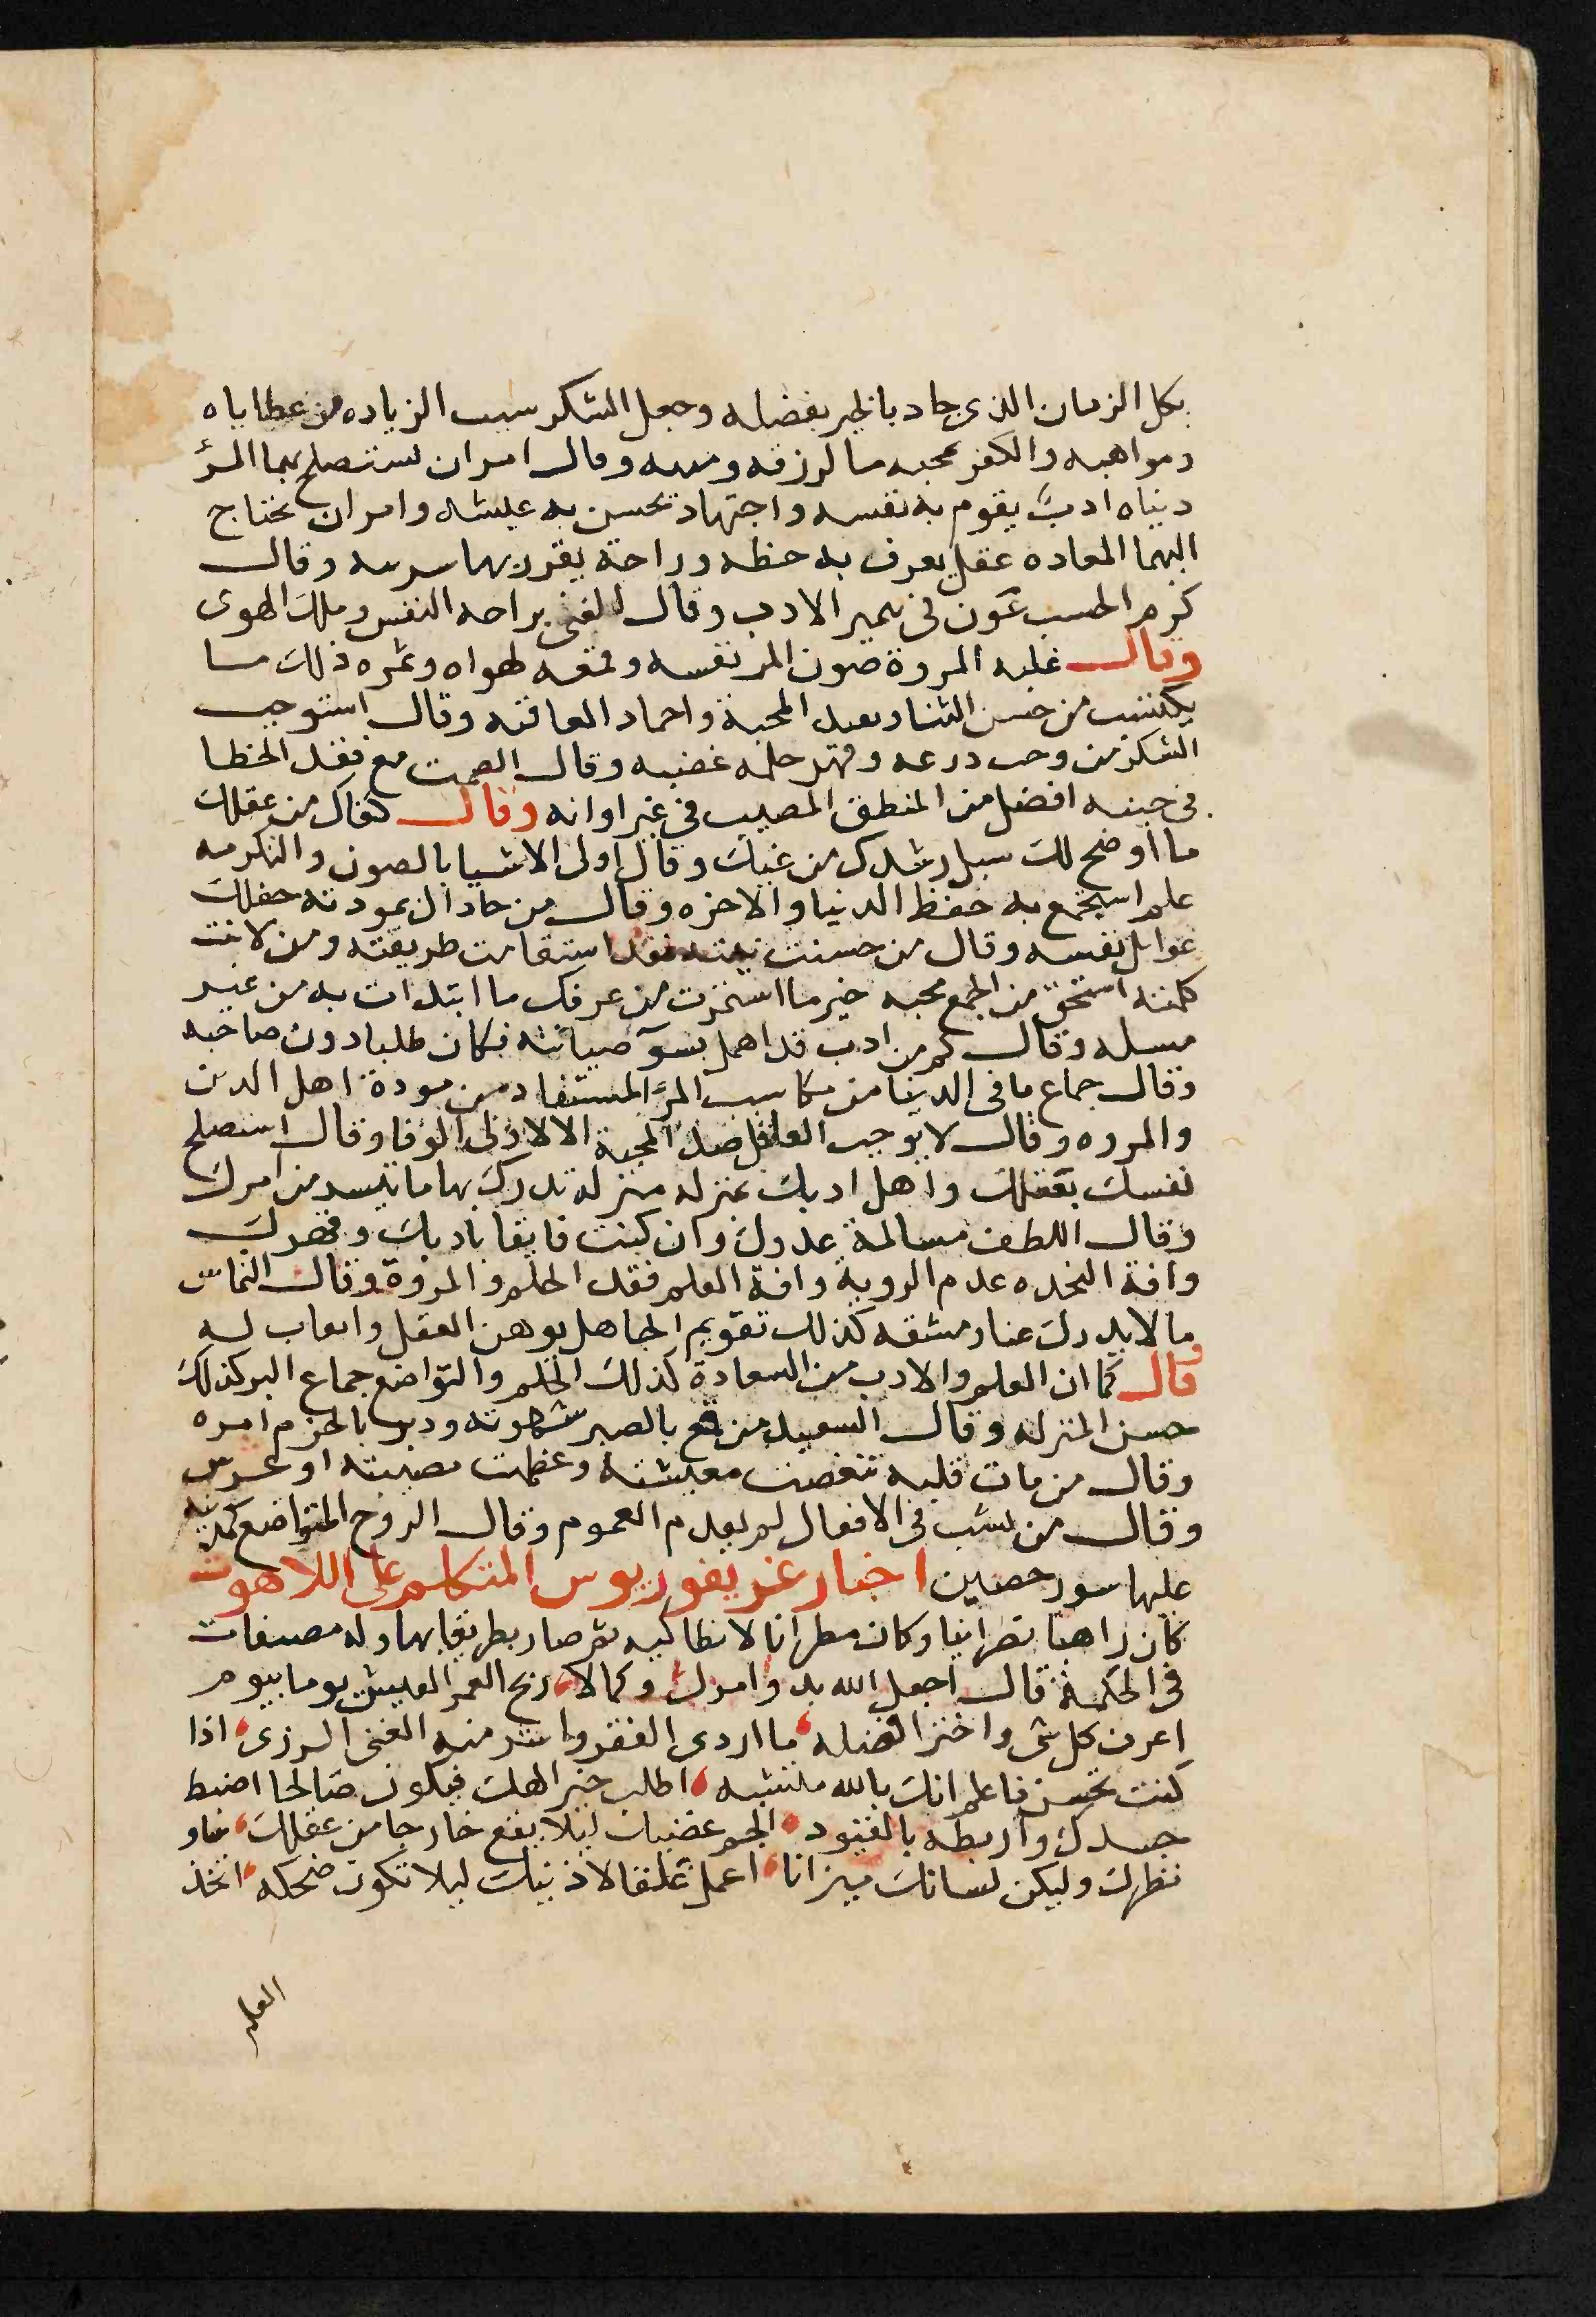 بكل الزمان الذى جاد بالخير بفضله وجعل الشكر سبب الزياده من عطاياه
ومواهبه والكفر محبه ما لرزقه ومنه وقال امران تستصلح بهما المرؤ
دنياه ادبٌ يقوم به نفسه واجتهاد تحسن به عيشه وامران تحتاج
اليهما المعاده عقل يعرف به حظه وراحة يقرر بها سرسه وقال
كرم الحسب عون فى تمير الادب وقال الغنى براحه النفس وملك الهوى
وقال غلبه المروة صون المر نفسه وقمعه لهواه وثمره ذلك ما
يكتسب من حسن الثنا وبعد المحبة واحماد العاقبه وقال استوجب
الشكر من رحب درعه وقهر حلمه غضبه وقال الصمت مع فقد الخطا
فى حينه افضل من المنطق المصيب فى غير اوانه وقال كفاك من عقلك
ما اوضح لك سبل رشدك من غيك وقال اولى الاشيا بالصون والتكرمه
علم استجمع به حفظ الدنيا والاخره وقال من حاد ال بمودته حفلك
غوايل نفسه وقال من حسنت نيته فقد استقامت طريقته ومن لانت
كلمته استحق من الجمع محبه خير ما استخرت من عرفك ما ابتدات به من غير
مسله وقال كم من ادب قد اهمل بسوٓ صيانته فكان طلبا دون صاحبه
وقال جماع ما فى الدنيا من مكاسب المرٔ المستفاد من مودة اهل الدين
والمروه وقال لا يوجب العاقل ضد المحبة الا لاولى الوفا وقال استصلح
نفسك بعقلك واهل ادبك بمنزله منزله تدرك بها ما تفسد من امرك
وقال اللطف مسالمة عدوك وان كنت فايقا بادبك وقهرك
وافة النجده عدم الروية وافة العلم فقد الحلم والمروة وقال التماس
ما لا يدرك عنا ومشقه كذلك تقويم الجاهل يوهن العقل واتعاب له
وقال كما ان العلم والادب من السعادة كذلك الحلم والتواضع جماع البر كذلك
حسن المنزله وقال السعيد من قمع بالصبر شهوته ودبر بالحزم امره
وقال من مات قلبه تنغصت معيشته وعظمت مصيبته او عرس
وقال من نشب فى الافعال لم يعدم العموم وقال الروح المتواضع كمدينه
عليها سور حصين اخبار غريغوريوس المتكلم على اللاهوت
كان راهبا نصرانيا وكان مطرانا لانطاكيه ثم صار بطريقا بها وله مصنفات
فى الحكمة قال اجعل الله بدو امرك وكمالا، ربح العمر العيش يوما بيوم
اعرف كل شى واختر افضله، ما اردى الفقر واشر منه الغنى الردى، اذا
كنت تحسن فاعلم انك بالله متشبه، اطلب خير الهك فيكون صالحا اضبط
جسدك واربطه بالقيود، الجم غضبك ليلا يقع خارجا من عقلك، غاو
نظرك وليكن لسانك ميزانا، اعمل غلقا لاذنيك ليلا تكون ضحكه، اتخذ
العلم